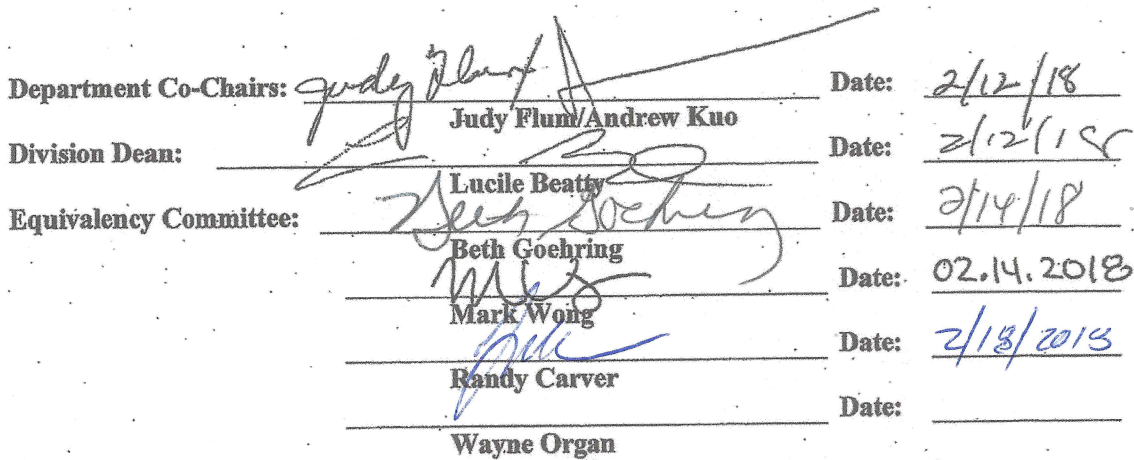 Department Co-Chairs: Judy Flum Date: 2/12/18
Judy Flum/Andrew Kuo
Division Dean: Date: 2/12/18
Lucile Beatty
Equivalency Committee: Beth Goehring Date: 2/14/18
Beth Goehring
Date: 02.14.2018
Mark Wong
Date: 2/18/2018
Randy Carver
Date:
Wayne Organ